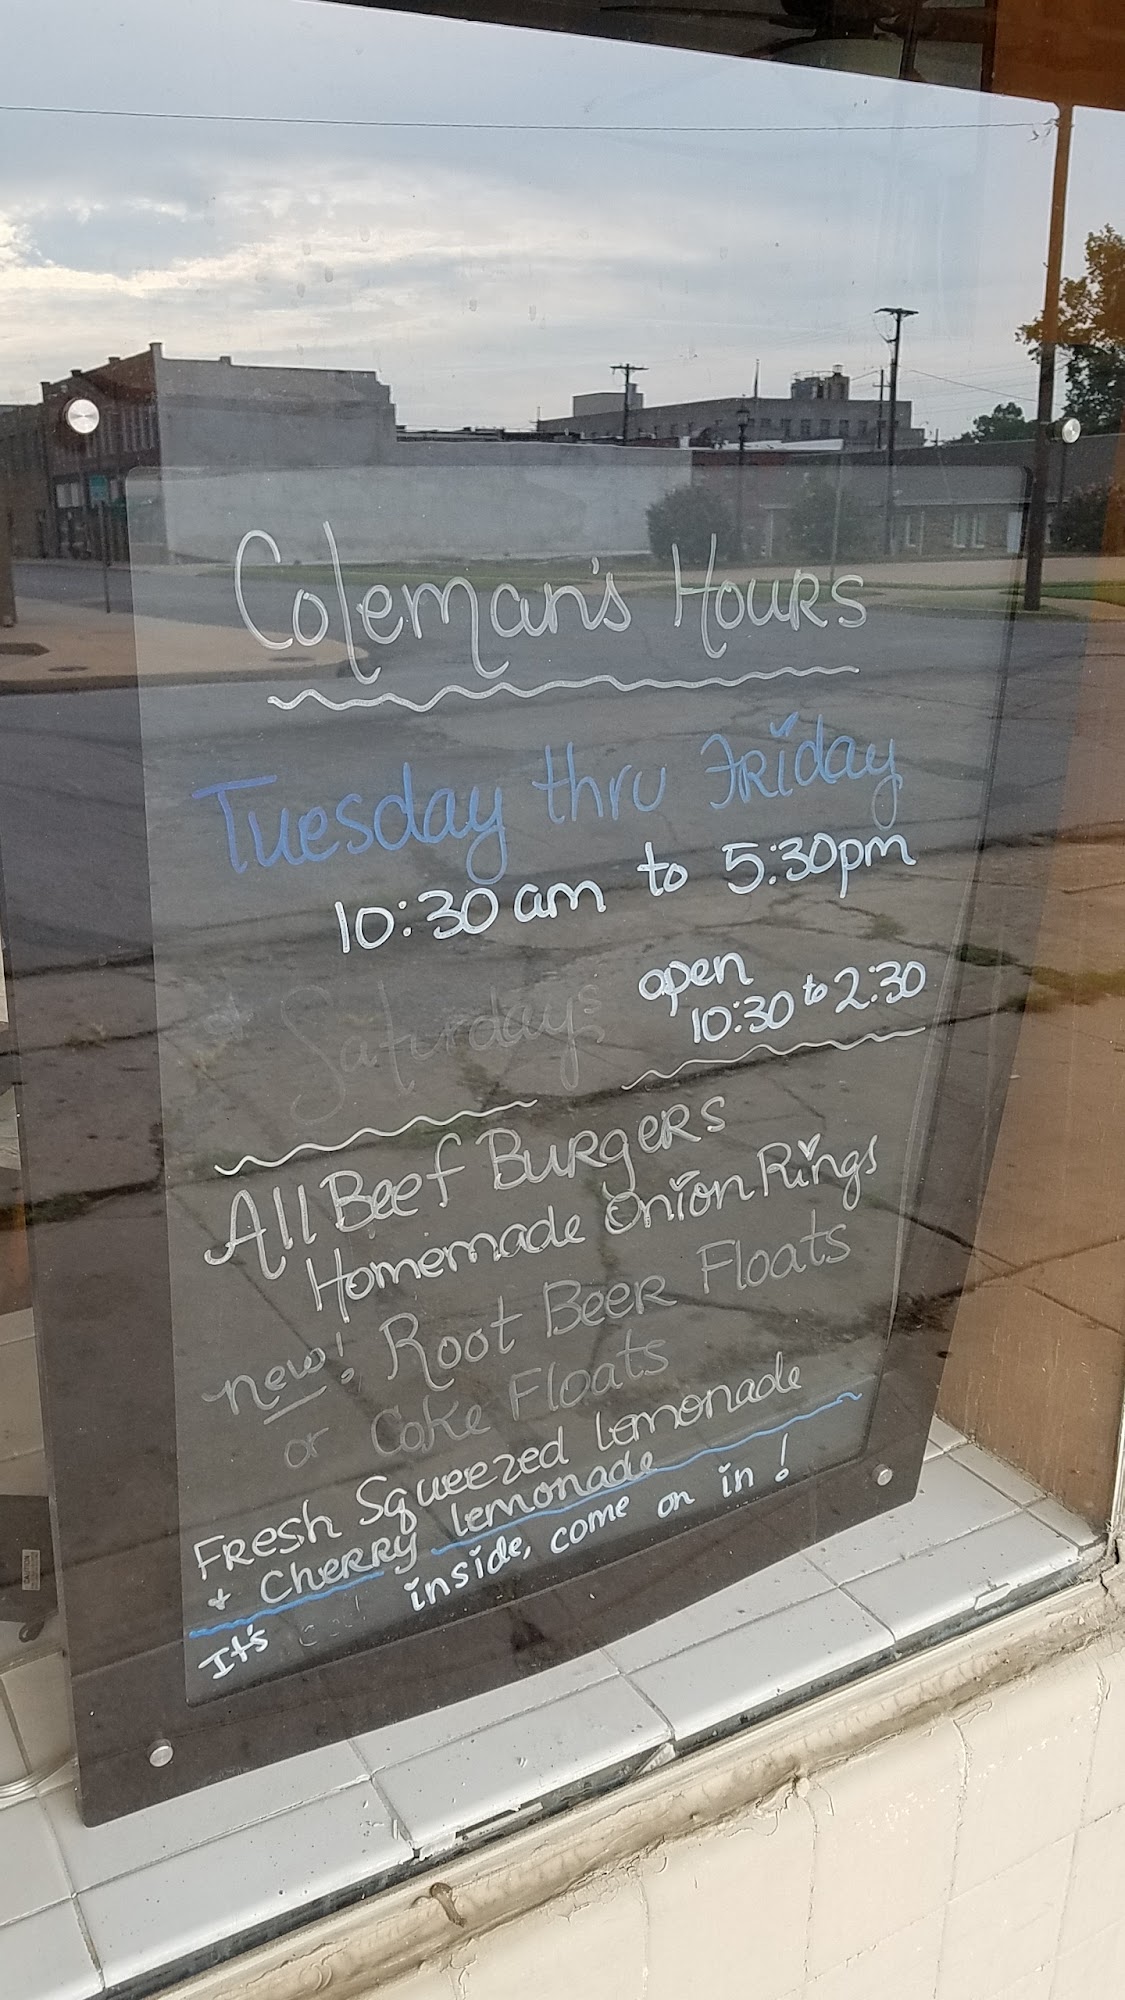 Coleman's Hours
Tuesday thru Friday
10:30 am to 5:30pm
Saturdays open
10:30 to 2:30
All Beef Burgers
Homemade Onion Rings
new! Root Beer Floats
or Coke Floats
Fresh Squeezed Lemonade
+ Cherry lemonade
It's cool inside, come on in!